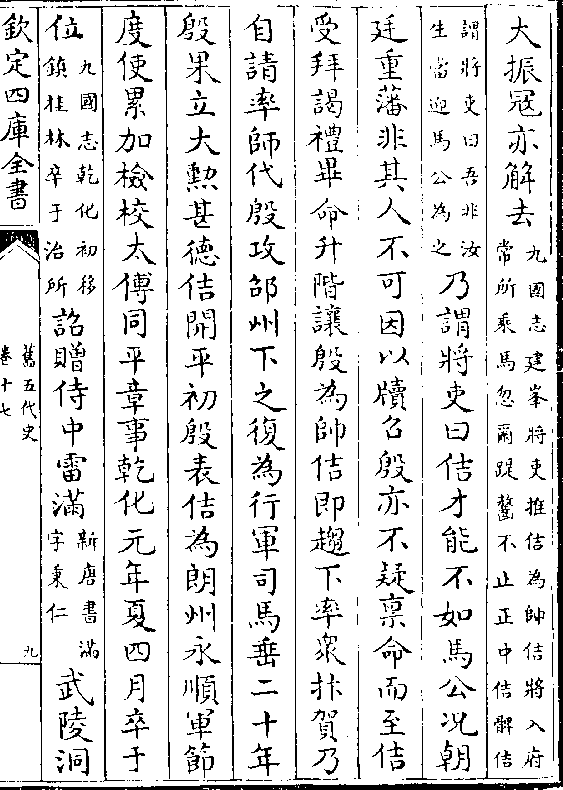 大振冦亦解去九國志建峯將吏推佶為帥佶將入府
常所乘馬忽爾踶齧不止正中佶髀佶
謂將吏曰吾非汝
生當迎馬公為之乃謂將吏曰佶才能不如馬公况朝
廷重藩非其人不可因以牘召殷亦不疑禀命而至佶
受拜謁禮畢命升階讓殷為帥佶即趨下率衆抃賀乃
自請率師代殷攻邵州下之復為行軍司馬垂二十年
殷果立大勲甚德佶開平初殷表佶為朗州永順軍節
度使累加檢校太傅同平章事乾化元年夏四月卒于
位九國志乾化初移
鎮桂林卒于治所詔贈侍中雷滿新唐書滿
字秉仁武陵洞
欽定四庫全書
舊五代史
卷十七
九